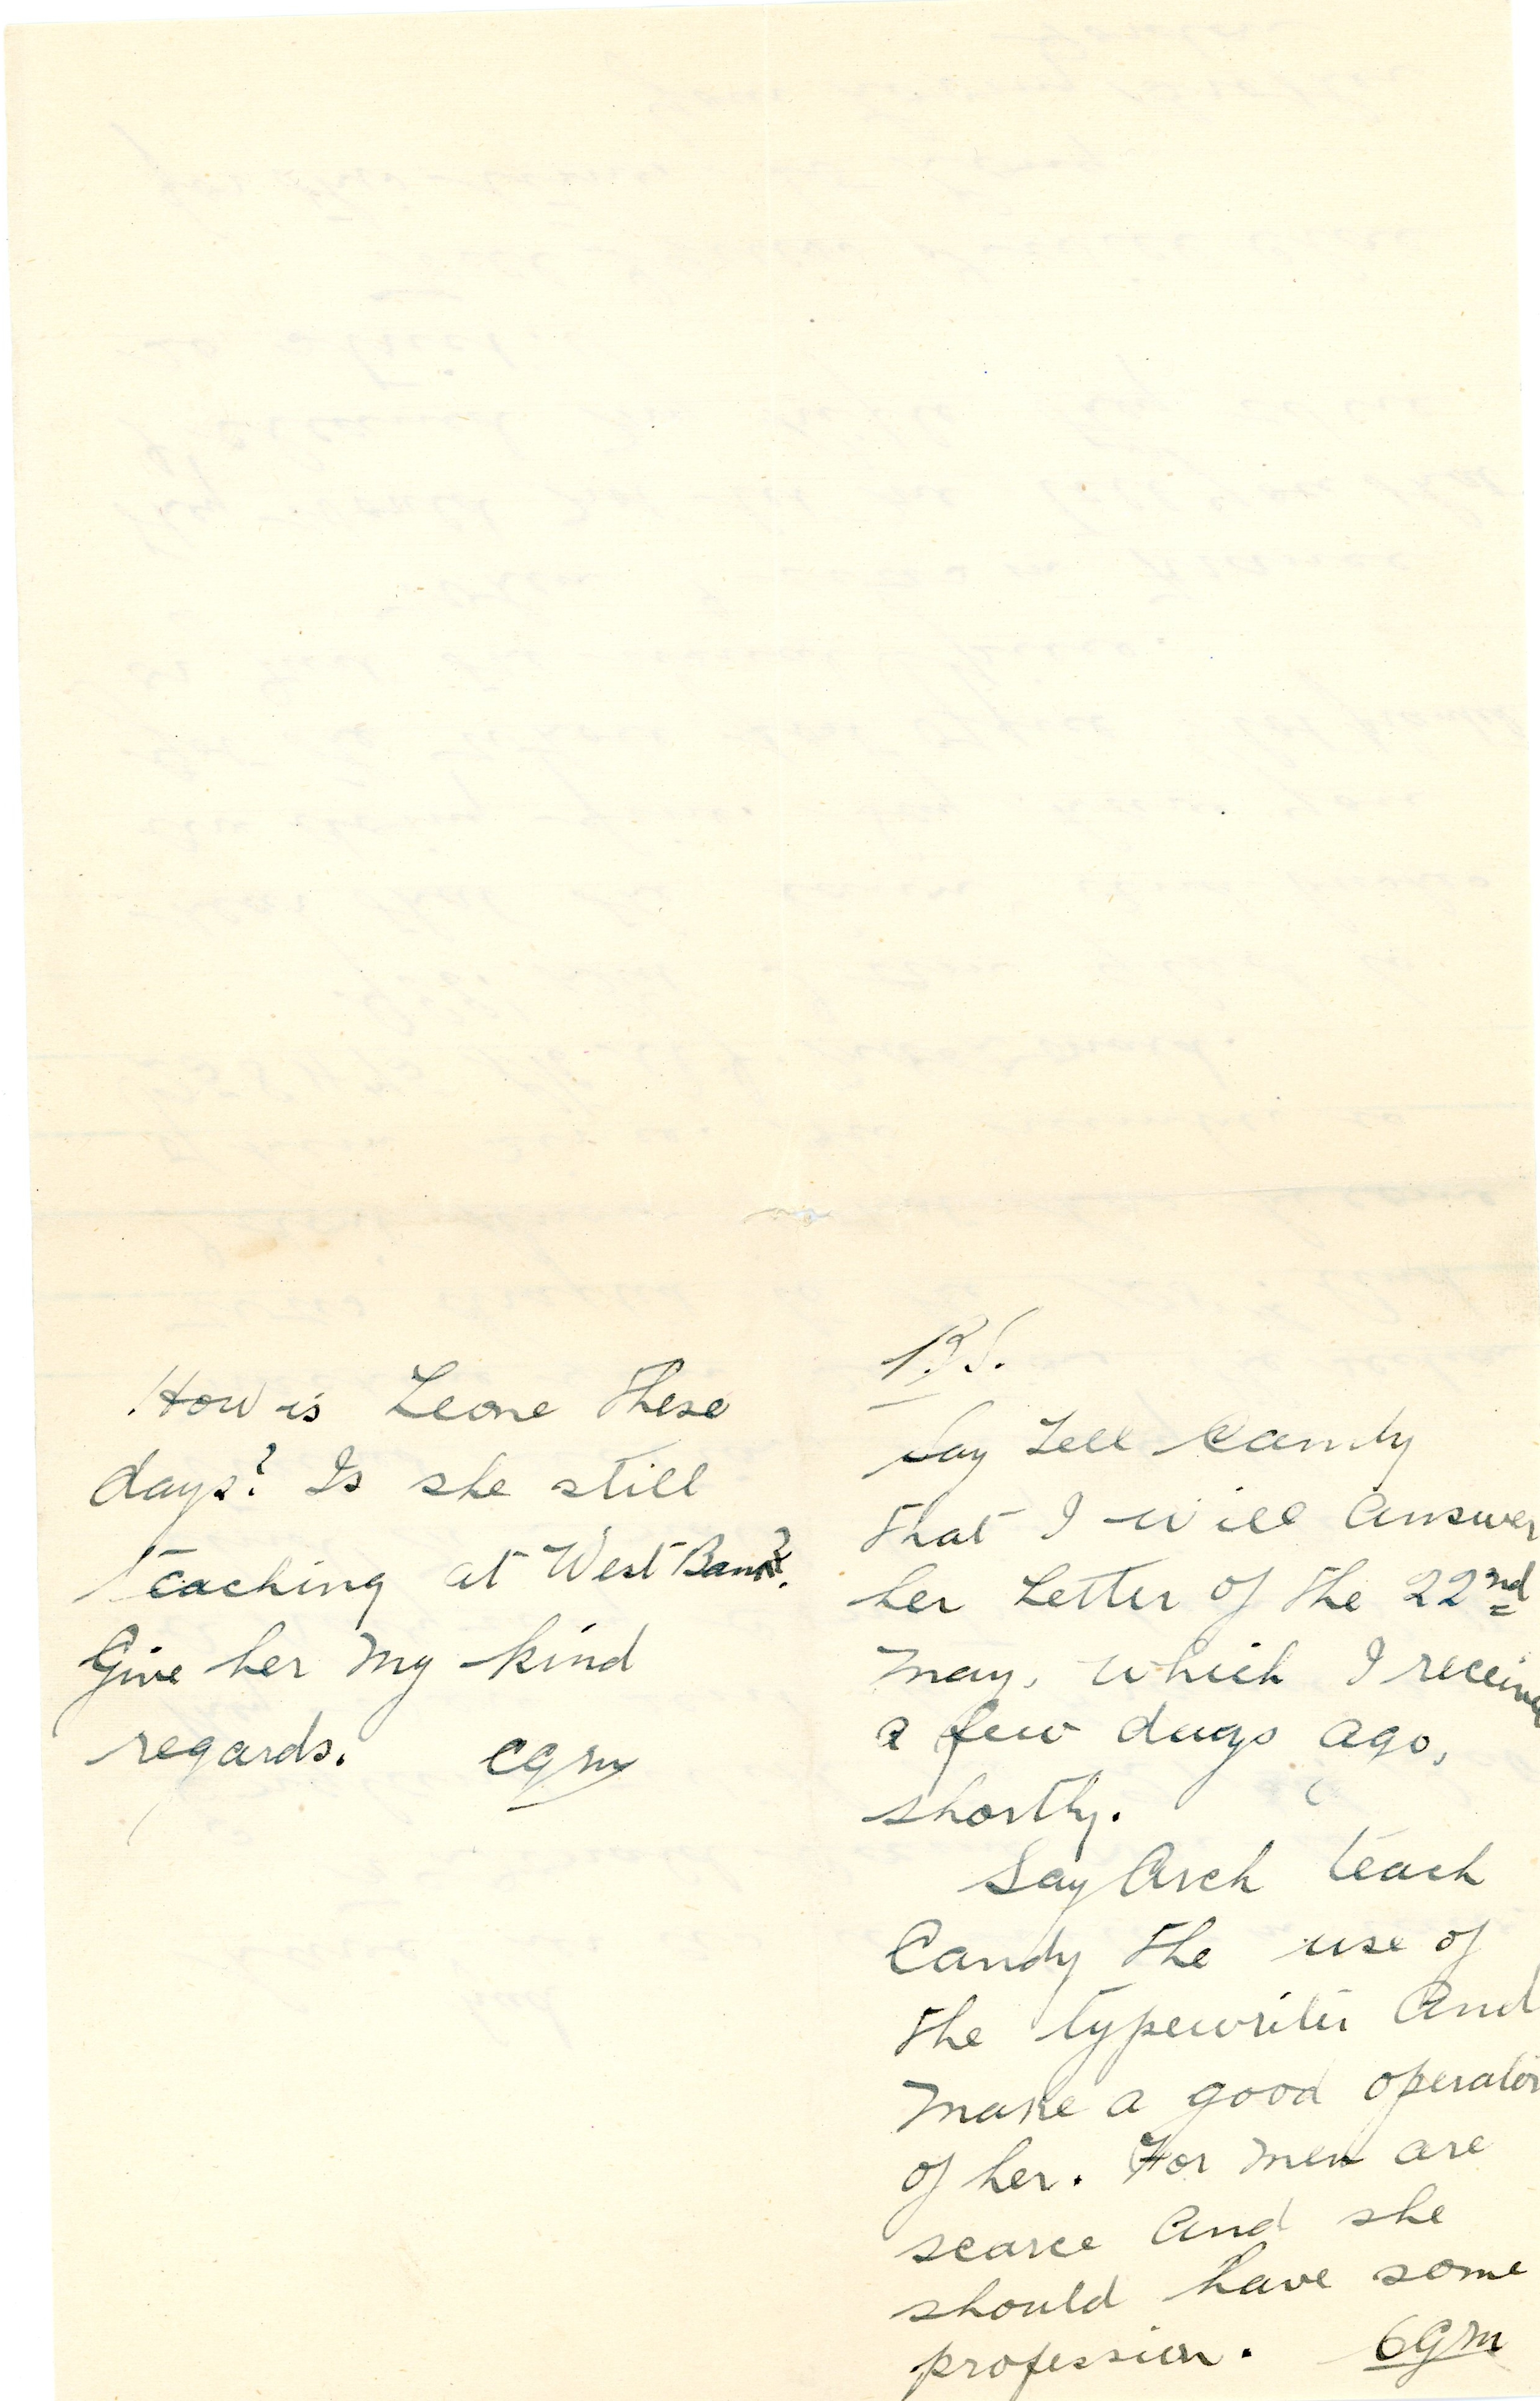 How is Leone these
days? Is she still
teaching at West Bank?
Give her my kind
regards. CGM
P.S.
Say tell Candy
that I will answer
her letter of the 22nd
May, which I received
a few days ago,
shortly.
Say Arch teach
Candy the use of
the typewriter and
make a good operator
of her. For men are
scarce and she
should have some
profession. CGM